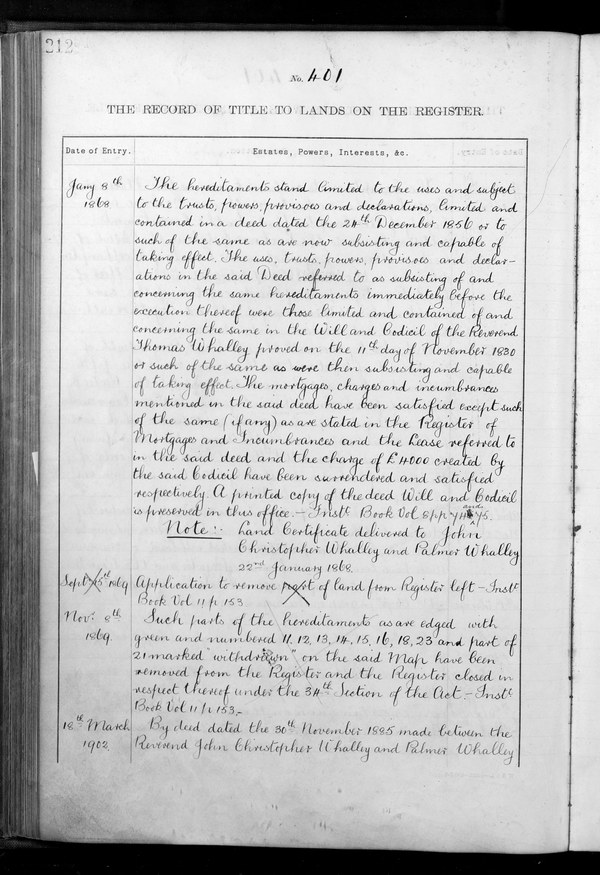 212
No. 401
THE RECORD OF TITLE TO LANDS ON THE REGISTER.
Date of Entry. Estates, Powers, Interests, &c.
Jany 8th The hereditaments stand limited to the uses and subject
1868 to the trusts, powers, provisoes and declarations, limited and
contained in a deed dated the 24th December 1856 or to
such of the same as are now subsisting and capable of
taking effect. The uses, trusts, powers, provisoes and declar-
ations in the said Deed referred to as subsisting of and
concerning the same hereditaments immediately before the
execution thereof were those limited and contained of and
concerning the same in the Will and Codicil of the Reverend
Thomas Whalley proved on the 11th day of November 1830
or such of the same as were then subsisting and capable
of taking effect. The mortgages, charges and incumbrances
mentioned in the said deed have been satisfied except such
of the same (if any) as are stated in the Register of
Mortgages and Incumbrances and the Lease referred to
in the said deed and the charge of £4000 created by
the said Codicil have been surrendered and satisfied
respectively. A printed copy of the deed Will and Codicil
is preserved in this office. – Instt Book Vol 8 pp 74 and 75.
Note:- Land Certificate delivered to John
Christopher Whalley and Palmer Whalley
22nd January 1868
Sept 15th 1869 Application to remove part of land from Register left – Instt
Book Vol 11 p 153
Novr 8th Such parts of the hereditaments as are edged with
1869. green and numbered 11, 12, 13, 14, 15, 16, 18, 23 and part of
21 marked "withdrawn" on the said Map have been
removed from the Register and the Register closed in
respect thereof under the 34th Section of the Act. – Instt
Book Vol 11 p 153,-
18th March By deed dated the 30th November 1885 made between the
1902. Reverend John Christopher Whalley and Palmer Whalley